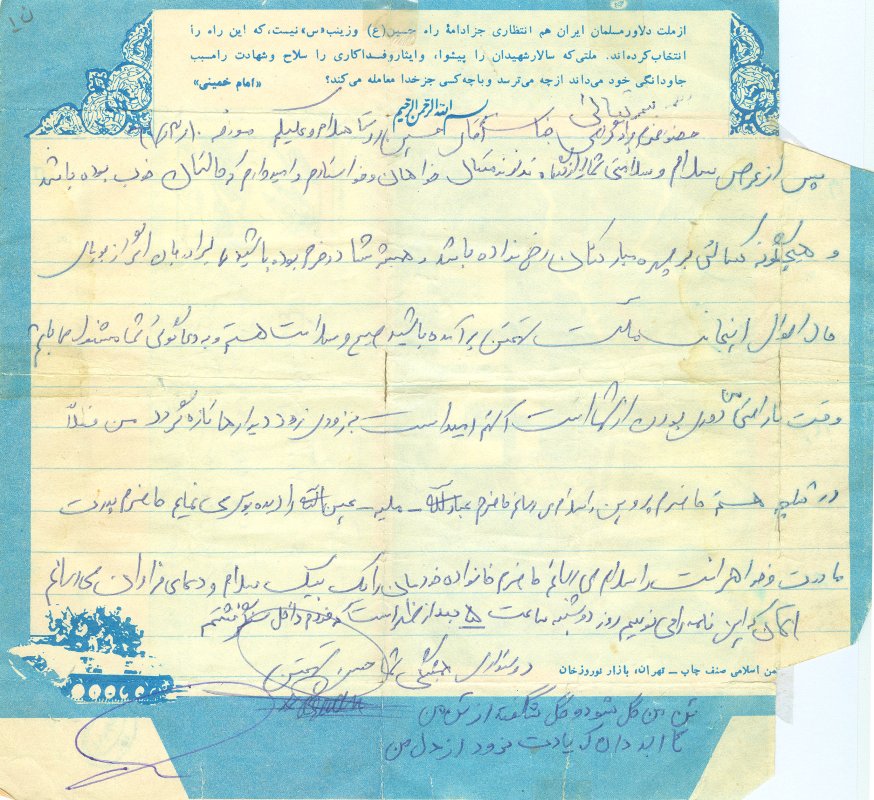 از ملت دلاور مسلمان ایران هم انتظاری جز ادامهٔ راه حسین(ع) و زینب«س» نیست، که این راه را
انتخاب کرده‌اند. ملتی که سالار شهیدان را پیشوا، و ایثار و فداکاری را سلاح و شهادت را سبب
جاودانگی خود می‌داند از چه می‌ترسد و با چه کسی جز خدا معامله می‌کند؟ «امام خمینی»
بسم الله الرحمن الرحیم
بسمه تعالی
حضور محترم برادر گرامی جناب آقای حسین سلام و علیکم مورخه
پس از عرض سلام و سلامتی شما از درگاه خداوند متعال خواهان و خواستارم و امیدوارم که حالتان خوب بوده باشد
و هیچگونه کسالتی بر چهره مبارکتان رخ نداده باشد و همیشه شاد و خرم بوده باشید برادر جان اگر از جویای
حال احوال اینجانب تهمتن برآمده باشید صحیح و سلامت هستم و به دعاگوئی شما مشغول می‌باشم
وقت ناراحتی من دوری بودن از شما است آنهم امید است به زودی زود دیدارها تازه گردد من فعلاً
در هستم خانم پروین را سلام می‌رسانم خانم را دیده بوسی می‌نمایم خدمت پدرت
مادرت و خواهرانت را سلام می‌رسانم خانواده خودمان را یک بیک سلام و دعای فراوان می‌رسانم
الان که این نامه را می‌نویسم روز دوشنبه ساعت ۵ بعد از ظهر است که خودم داخل نشستم
دوستدار همیشگی شما حسین تهمتن
من اسلامی صنف چاپ – تهران، بازار نوروزخان
تن من گل شود و گل شکفته از تن من
تا ابد دان که یادت نرود از دل من